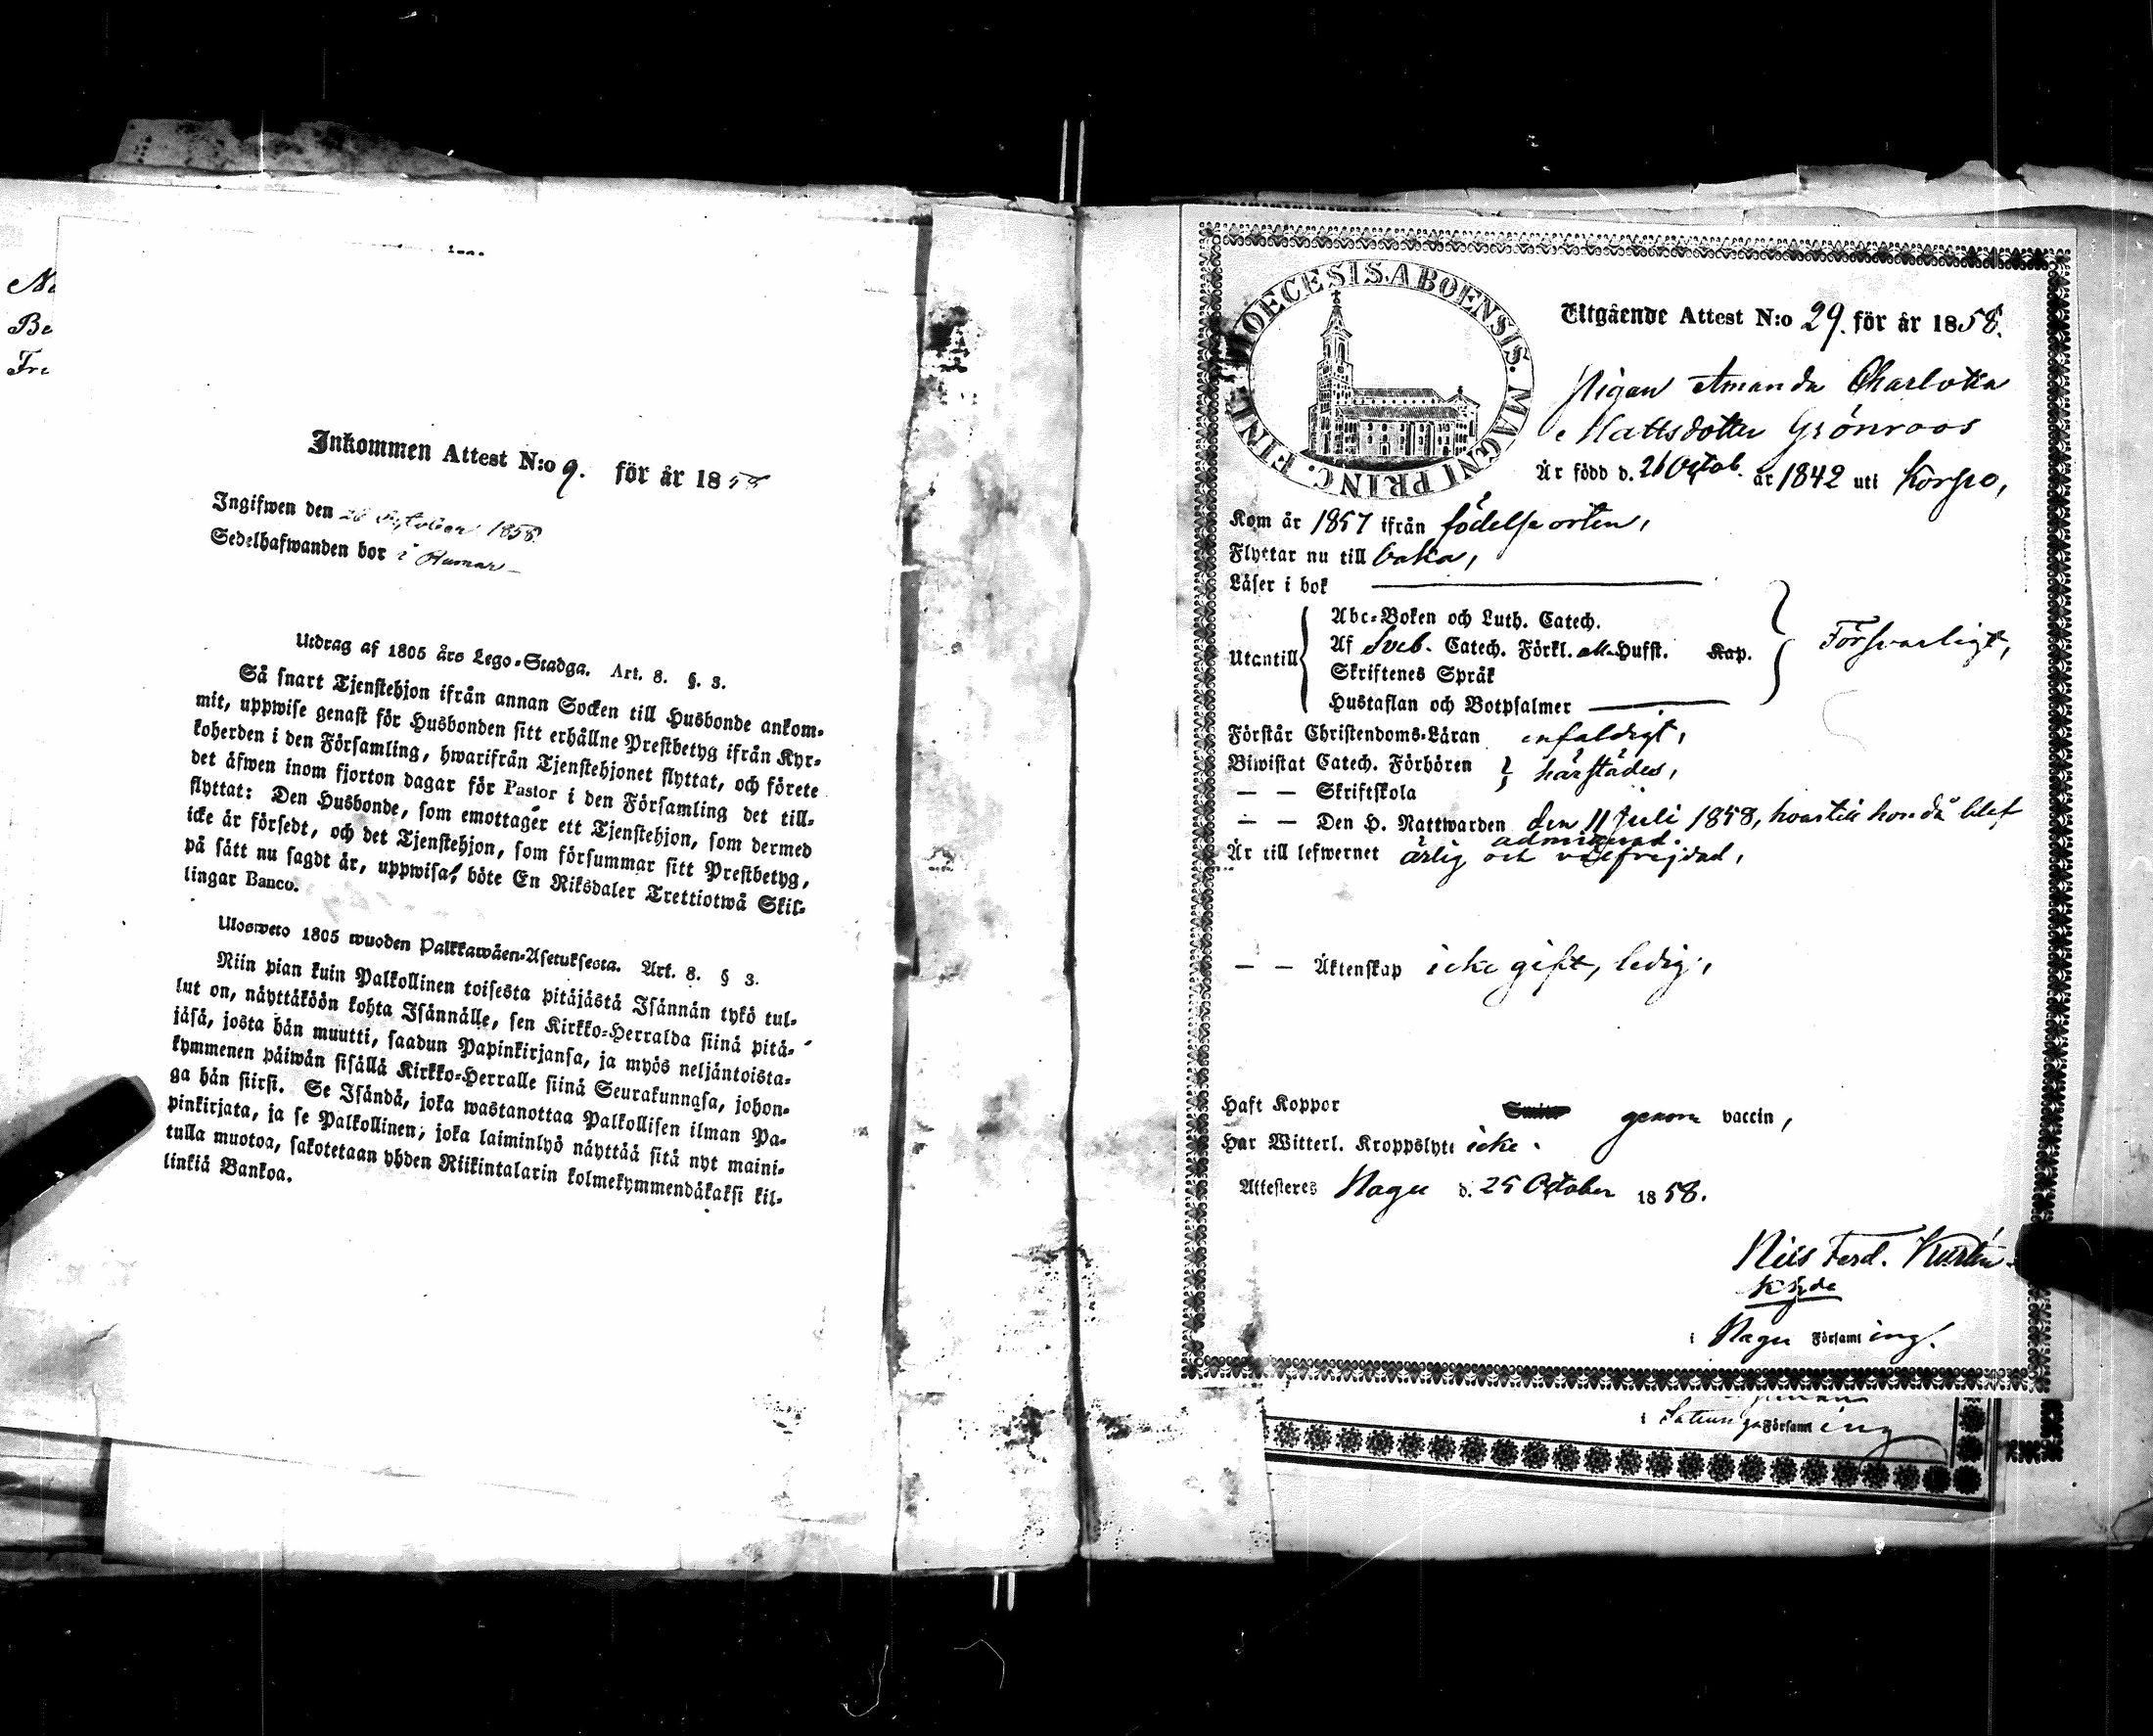 Inkommen Attest N:o 9. för år 1858
Ingifwen den 28 October 1858.
Sedelhafwanden bor i Rumar
Utdrag af 1805 års Lego-Stadga. Art. 8. §. 3.
Så snart Tjenstehjon ifrån annan Socken till Husbonde ankom-
mit, uppwise genast för Husbonden sitt erhållne Prestbetyg ifrån Kyr-
koherden i den Församling, hwarifrån Tjenstehjonet flyttat, och förete
det äfwen inom fjorton dagar för Pastor i den Församling det till-
flyttat: Den Husbonde, som emottager ett Tjenstehjon, som dermed
icke är försedt, och det Tjenstehjon, som försummar sitt Prestbetyg,
på sätt nu sagdt är, uppwisa, böte En Riksdaler Trettiotwå Skil-
lingar Banco.
Ulosweto 1805 wuoden Palkkawäen-Asetuksesta. Art. 8. § 3.
Niin pian kuin Palkollinen toisesta pitäjästä Isännän tykö tul-
lut on, näyttäköön kohta Isännälle, sen Kirkko-Herralda siinä pitä-
jäsä, josta hän muutti, saadun Papinkirjansa, ja myös neljäntoista-
kymmenen päiwän sisällä Kirkko-Herralle siinä Seurakunnasa, johon-
ga hän siirsi. Se Isändä, joka wastanottaa Palkollisen ilman Pa-
pinkirjata, ja se Palkollinen, joka laiminlyö näyttää sitä nyt maini-
tulla muotoa, sakotetaan yhden Riikintalarin kolmekymmendäkaksi kil-
linkiä Bankoa.
DIOECESIS. ABOENSIS. MAGNI PRINC. FINL.
Utgående Attest N:o 29. för år 1858.
Pigan Amanda Charlotta
Mattsdotter Grönroos
Är född d. 26 Octob. år 1842 uti Korpo,
Kom år 1857 ifrån födelseorten,
Flyttar nu till baka,
Läser i bok
Abc-Boken och Luth. Catech.
Utantill Af Sveb. Catech. Förkl. alla Hufst. Kap. Försvarligt,
Skriftenes Språk
Hustaflan och Botpsalmer
Förstår Christendoms-Läran enfaldigt,
Biwistat Catech. Förhören härstädes,
— — Skriftskola
— — Den H. Nattwarden den 11 Juli 1858, hvartill hon då blef
admitterad.
Är till lefwernet ärlig och välfrejdad,
— — Äktenskap icke gift, ledig,
Haft Koppor genom vaccin,
Har Witterl. Kroppslyte icke.
Attesteres Nagu d. 25 October 1858.
Nils Ferd.
Khde
i Nagu Församling.
i Församling